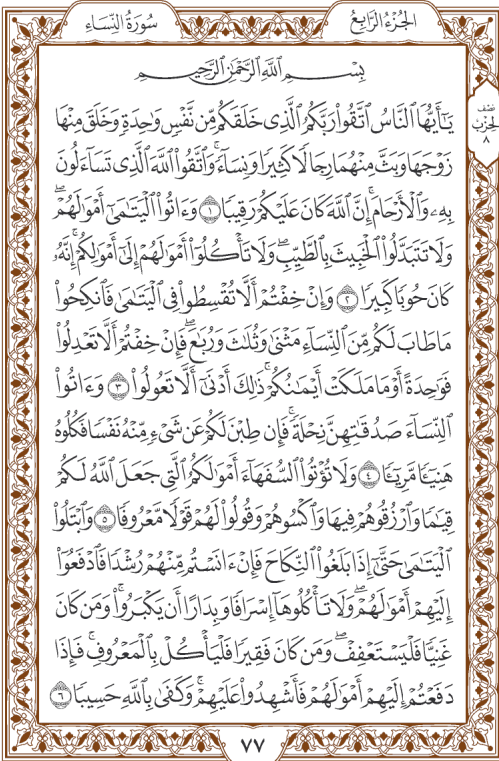 الجُزءُ الرَّابِعُ
سُورَةُ النِّسَاءِ
نصف
الحزب
٨
بِسْمِ ٱللَّهِ ٱلرَّحْمَٰنِ ٱلرَّحِيمِ
يَٰٓأَيُّهَا ٱلنَّاسُ ٱتَّقُوا۟ رَبَّكُمُ ٱلَّذِى خَلَقَكُم مِّن نَّفْسٍ وَٰحِدَةٍ وَخَلَقَ مِنْهَا
زَوْجَهَا وَبَثَّ مِنْهُمَا رِجَالًا كَثِيرًا وَنِسَآءً ۚ وَٱتَّقُوا۟ ٱللَّهَ ٱلَّذِى تَسَآءَلُونَ
بِهِۦ وَٱلْأَرْحَامَ ۚ إِنَّ ٱللَّهَ كَانَ عَلَيْكُمْ رَقِيبًا ١ وَءَاتُوا۟ ٱلْيَتَٰمَىٰٓ أَمْوَٰلَهُمْ ۖ
وَلَا تَتَبَدَّلُوا۟ ٱلْخَبِيثَ بِٱلطَّيِّبِ ۖ وَلَا تَأْكُلُوٓا۟ أَمْوَٰلَهُمْ إِلَىٰٓ أَمْوَٰلِكُمْ ۚ إِنَّهُۥ
كَانَ حُوبًا كَبِيرًا ٢ وَإِنْ خِفْتُمْ أَلَّا تُقْسِطُوا۟ فِى ٱلْيَتَٰمَىٰ فَٱنكِحُوا۟
مَا طَابَ لَكُم مِّنَ ٱلنِّسَآءِ مَثْنَىٰ وَثُلَٰثَ وَرُبَٰعَ ۖ فَإِنْ خِفْتُمْ أَلَّا تَعْدِلُوا۟
فَوَٰحِدَةً أَوْ مَا مَلَكَتْ أَيْمَٰنُكُمْ ۚ ذَٰلِكَ أَدْنَىٰٓ أَلَّا تَعُولُوا۟ ٣ وَءَاتُوا۟
ٱلنِّسَآءَ صَدُقَٰتِهِنَّ نِحْلَةً ۚ فَإِن طِبْنَ لَكُمْ عَن شَىْءٍ مِّنْهُ نَفْسًا فَكُلُوهُ
هَنِيٓـًٔا مَّرِيٓـًٔا ٤ وَلَا تُؤْتُوا۟ ٱلسُّفَهَآءَ أَمْوَٰلَكُمُ ٱلَّتِى جَعَلَ ٱللَّهُ لَكُمْ
قِيَٰمًا وَٱرْزُقُوهُمْ فِيهَا وَٱكْسُوهُمْ وَقُولُوا۟ لَهُمْ قَوْلًا مَّعْرُوفًا ٥ وَٱبْتَلُوا۟
ٱلْيَتَٰمَىٰ حَتَّىٰٓ إِذَا بَلَغُوا۟ ٱلنِّكَاحَ فَإِنْ ءَانَسْتُم مِّنْهُمْ رُشْدًا فَٱدْفَعُوٓا۟
إِلَيْهِمْ أَمْوَٰلَهُمْ ۖ وَلَا تَأْكُلُوهَآ إِسْرَافًا وَبِدَارًا أَن يَكْبَرُوا۟ ۚ وَمَن كَانَ
غَنِيًّا فَلْيَسْتَعْفِفْ ۖ وَمَن كَانَ فَقِيرًا فَلْيَأْكُلْ بِٱلْمَعْرُوفِ ۚ فَإِذَا
دَفَعْتُمْ إِلَيْهِمْ أَمْوَٰلَهُمْ فَأَشْهِدُوا۟ عَلَيْهِمْ ۚ وَكَفَىٰ بِٱللَّهِ حَسِيبًا ٦
٧٧